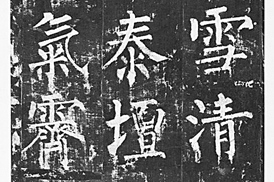 雪清
泰壇
氣霽